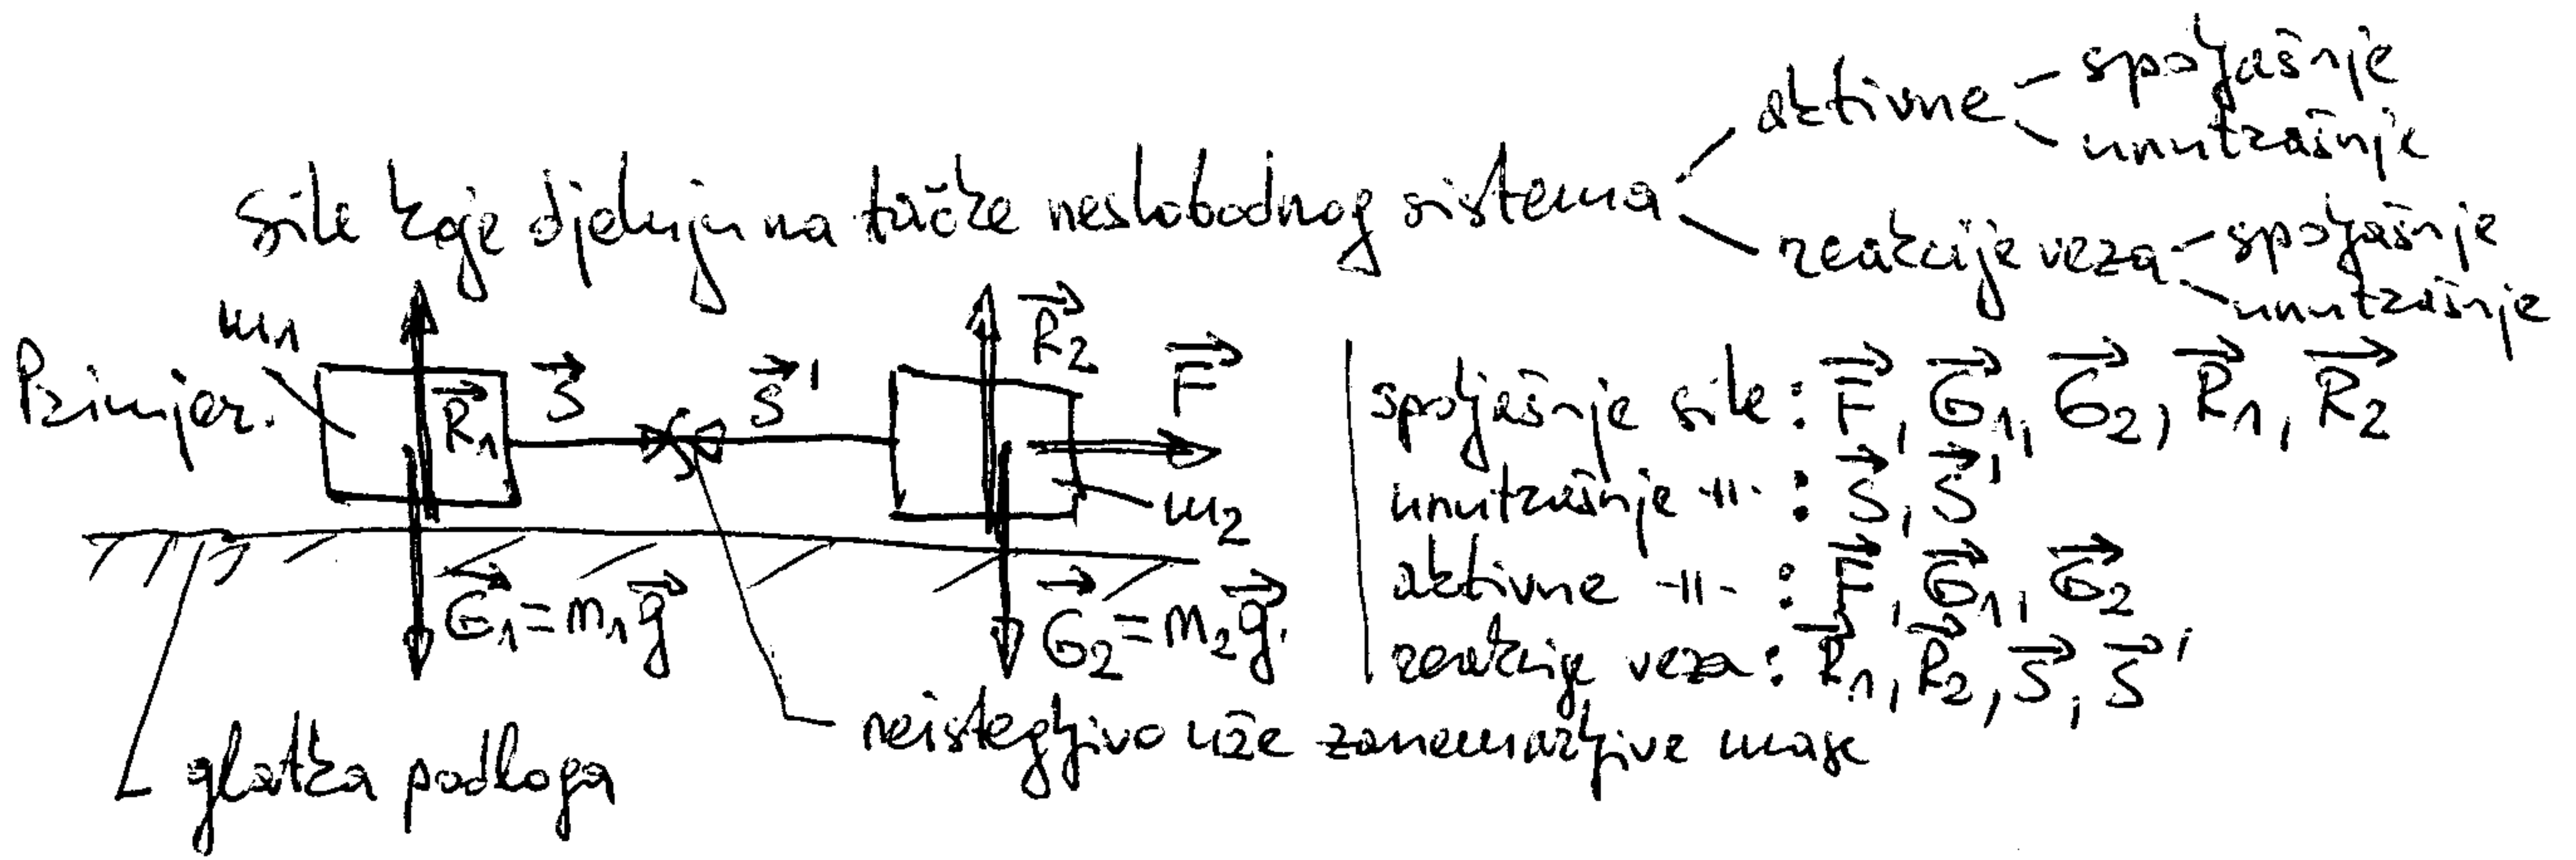 sile koje djeluju na tačke neslobodnog sistema
aktivne
spoljašnje
unutrašnje
reakcije veza
spoljašnje
unutrašnje
Primjer.
m₁
R⃗₁
S⃗
S⃗'
R⃗₂
F⃗
m₂
G⃗₁ = m₁g⃗
G⃗₂ = m₂g⃗.
glatka podloga
neistegljivo uže zanemarljive mase
spoljašnje sile: F⃗, G⃗₁, G⃗₂, R⃗₁, R⃗₂
unutrašnje -||- : S⃗, S⃗'
aktivne -||- : F⃗, G⃗₁, G⃗₂
reakcije veza: R⃗₁, R⃗₂, S⃗, S⃗'